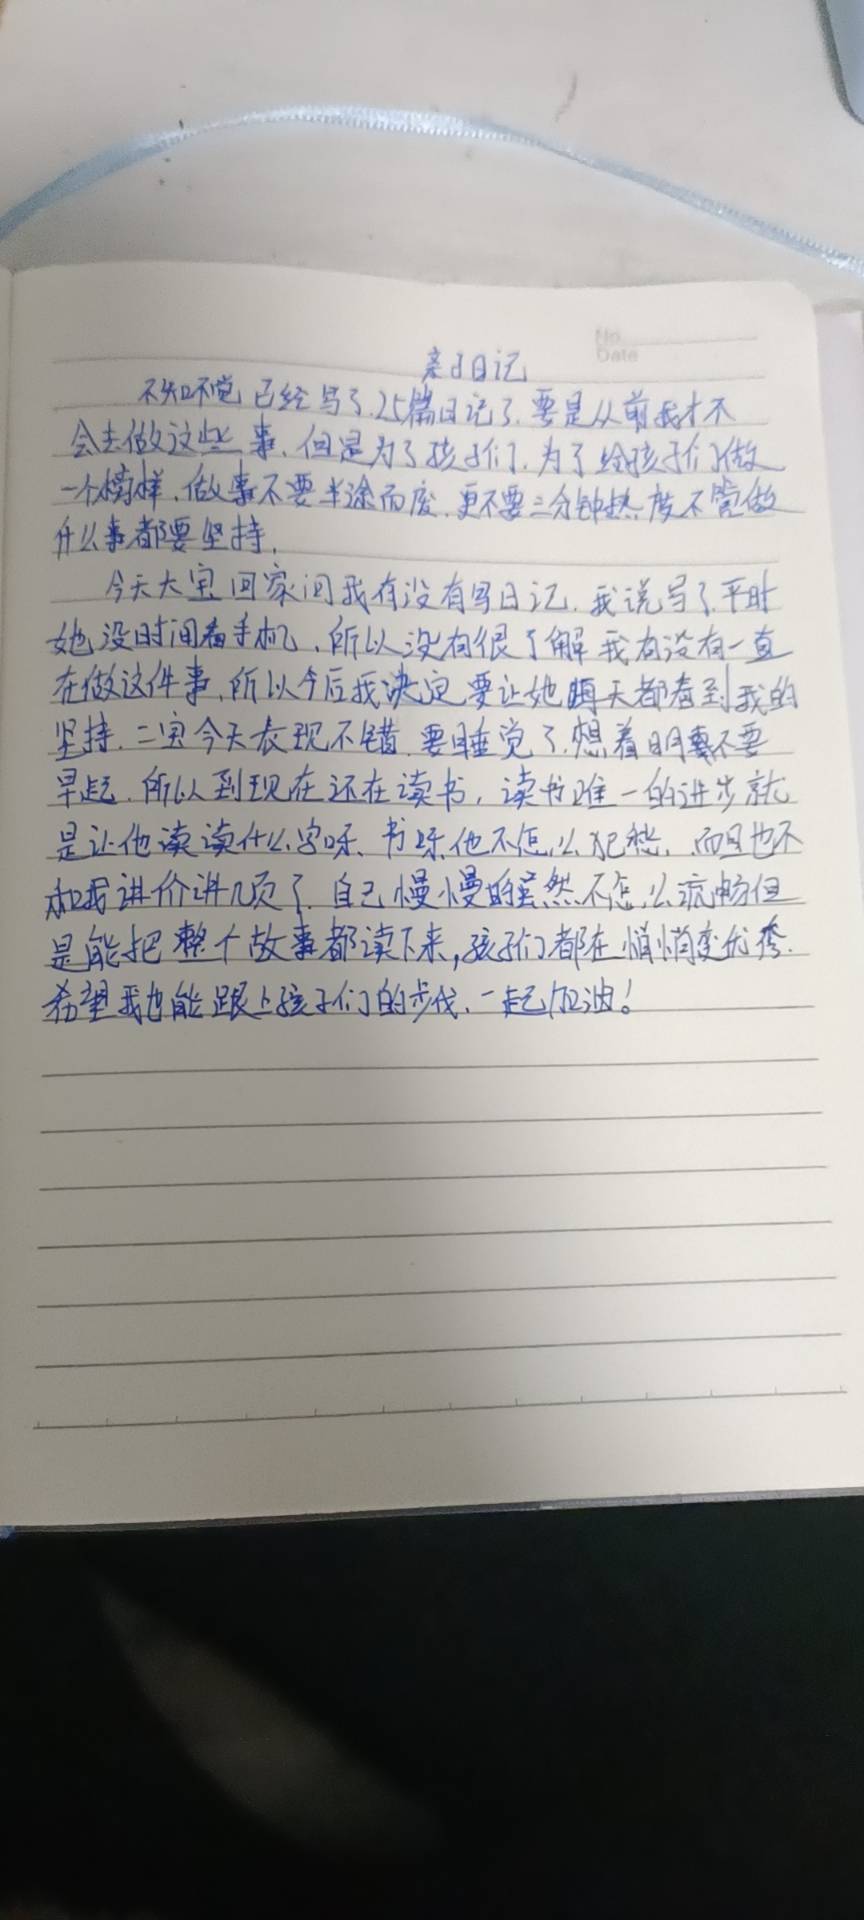 No
Date
亲子日记
不知不觉已经写了25篇日记了.要是从前我才不
会去做这些事.但是为了孩子们.为了给孩子们做
一个榜样.做事不要半途而废.更不要三分钟热度不管做
什么事都要坚持.
今天大宝回家问我有没有写日记.我说写了.平时
她没时间看手机.所以没有很了解我有没有一直
在做这件事.所以今后我决定要让她每天都看到我的
坚持.二宝今天表现不错.要睡觉了.想着明天不要
早起.所以到现在还在读书,读书唯一的进步就
是让他读读什么字呀、书呀他不怎么犯愁.而且也不
和我讲价讲几页了.自己慢慢的虽然不怎么流畅但
是能把整个故事都读下来,孩子们都在悄悄变优秀.
希望我也能跟上孩子们的步伐.一起加油!